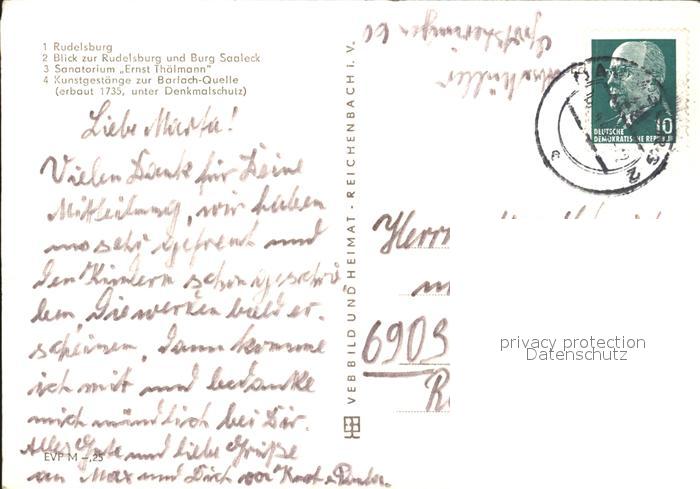 1 Rudelsburg
2 Blick zur Rudelsburg und Burg Saaleck
3 Sanatorium „Ernst Thälmann"
4 Kunstgestänge zur Barlach-Quelle
(erbaut 1735, unter Denkmalschutz)
Liebe Marta!
Vielen Dank für Deine
Mitteilung, wir haben
uns sehr gefreut und
den Kindern schon geschrie
ben. Sie werden bald er-
scheinen, dann komme
ich mit und bedanke
mich mündlich bei Dir.
Alles Gute und liebe Grüße
an Max und Dich von
EVP M –,25
VEB BILD UND HEIMAT · REICHENBACH I. V.
DEUTSCHE
DEMOKRATISCHE REPUBLIK
10
Herrn
6903
privacy protection
Datenschutz